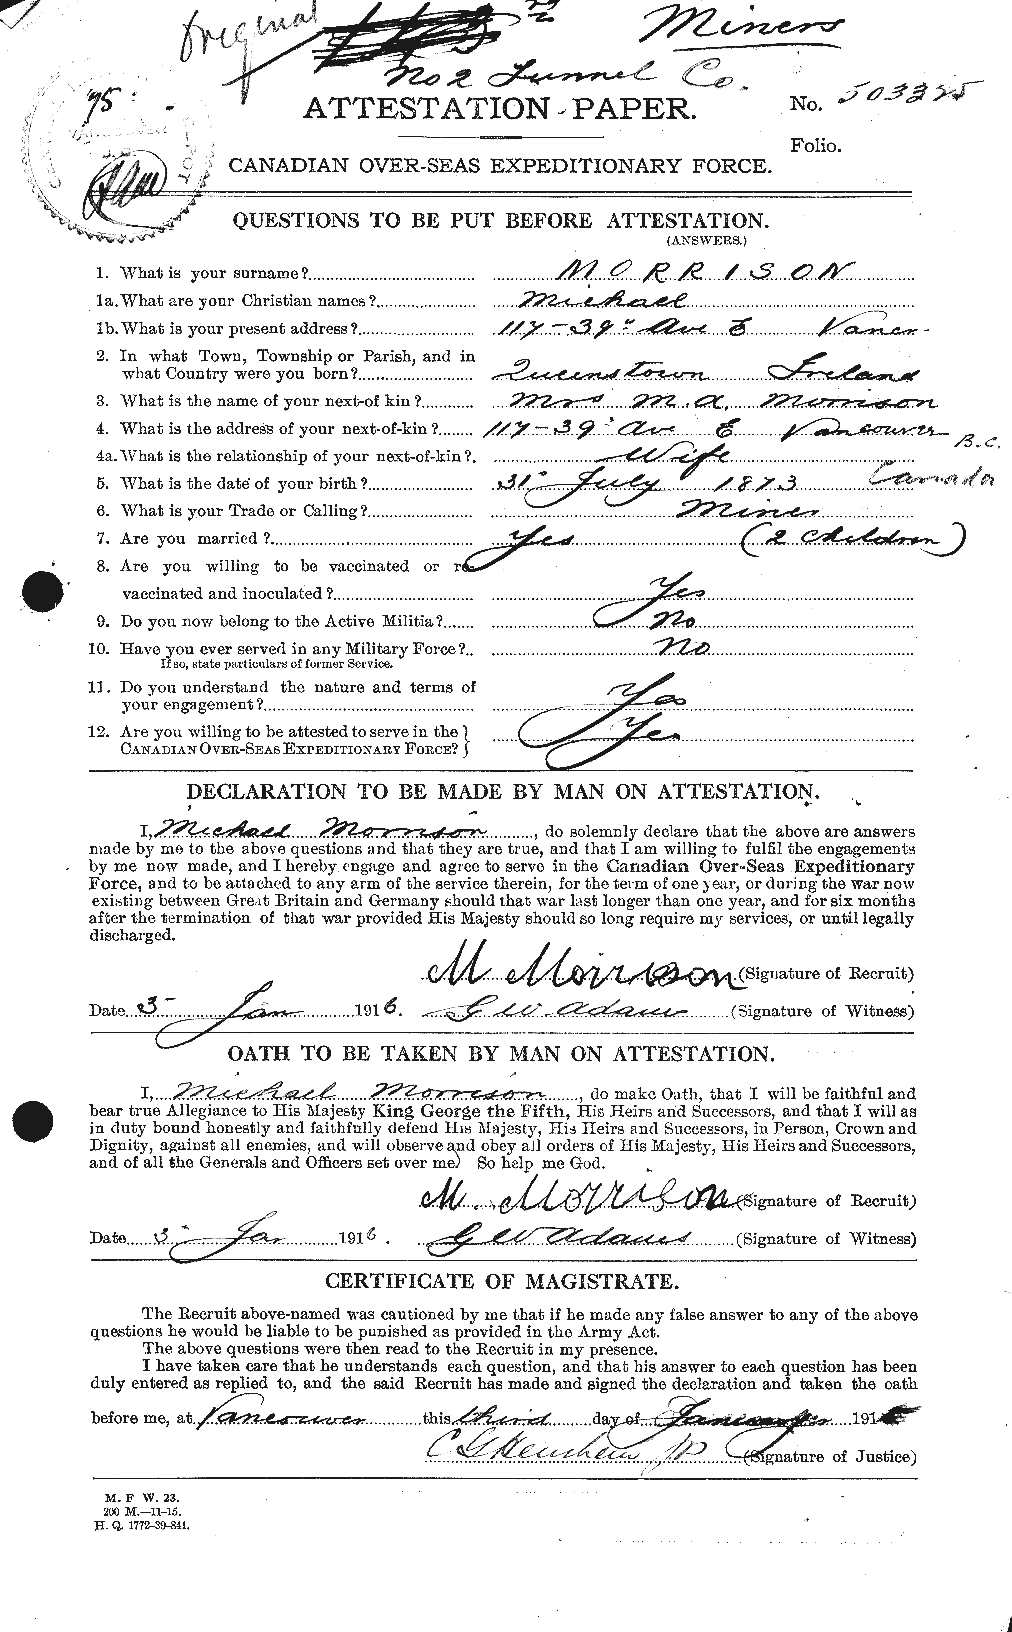 Original
Miners
No 2 Tunnel Co.
75
ATTESTATION PAPER.
No. 503325
Folio.
CANADIAN OVER-SEAS EXPEDITIONARY FORCE.
QUESTIONS TO BE PUT BEFORE ATTESTATION.
(ANSWERS.)
1. What is your surname? MORRISON
1a. What are your Christian names? Michael
1b. What is your present address? 117-39" Ave E Vancr
2. In what Town, Township or Parish, and in
what Country were you born? Queenstown Ireland
3. What is the name of your next-of kin? Mrs M. A. Morrison
4. What is the address of your next-of-kin? 117-39" Ave E Vancouver B.C.
4a. What is the relationship of your next-of-kin? Wife
5. What is the date of your birth? 31" July 1873 Canada
6. What is your Trade or Calling? Miner
7. Are you married? Yes (2 Children)
8. Are you willing to be vaccinated or re-
vaccinated and inoculated? Yes
9. Do you now belong to the Active Militia? No
10. Have you ever served in any Military Force? No
If so, state particulars of former Service.
11. Do you understand the nature and terms of
your engagement? Yes
12. Are you willing to be attested to serve in the
CANADIAN OVER-SEAS EXPEDITIONARY FORCE? Yes
DECLARATION TO BE MADE BY MAN ON ATTESTATION.
I, Michael Morrison, do solemnly declare that the above are answers
made by me to the above questions and that they are true, and that I am willing to fulfil the engagements
by me now made, and I hereby engage and agree to serve in the Canadian Over-Seas Expeditionary
Force, and to be attached to any arm of the service therein, for the term of one year, or during the war now
existing between Great Britain and Germany should that war last longer than one year, and for six months
after the termination of that war provided His Majesty should so long require my services, or until legally
discharged.
M Morrison (Signature of Recruit)
Date 3" Jan 1916. G W Adams (Signature of Witness)
OATH TO BE TAKEN BY MAN ON ATTESTATION.
I, Michael Morrison, do make Oath, that I will be faithful and
bear true Allegiance to His Majesty King George the Fifth, His Heirs and Successors, and that I will as
in duty bound honestly and faithfully defend His Majesty, His Heirs and Successors, in Person, Crown and
Dignity, against all enemies, and will observe and obey all orders of His Majesty, His Heirs and Successors,
and of all the Generals and Officers set over me. So help me God.
M. Morrison (Signature of Recruit)
Date 3" Jan 1916. G W Adams (Signature of Witness)
CERTIFICATE OF MAGISTRATE.
The Recruit above-named was cautioned by me that if he made any false answer to any of the above
questions he would be liable to be punished as provided in the Army Act.
The above questions were then read to the Recruit in my presence.
I have taken care that he understands each question, and that his answer to each question has been
duly entered as replied to, and the said Recruit has made and signed the declaration and taken the oath
before me, at Vancouver this third day of January 191
JP (Signature of Justice)
M. F. W. 23.
200 M.—11-15.
H. Q. 1772-39-841.